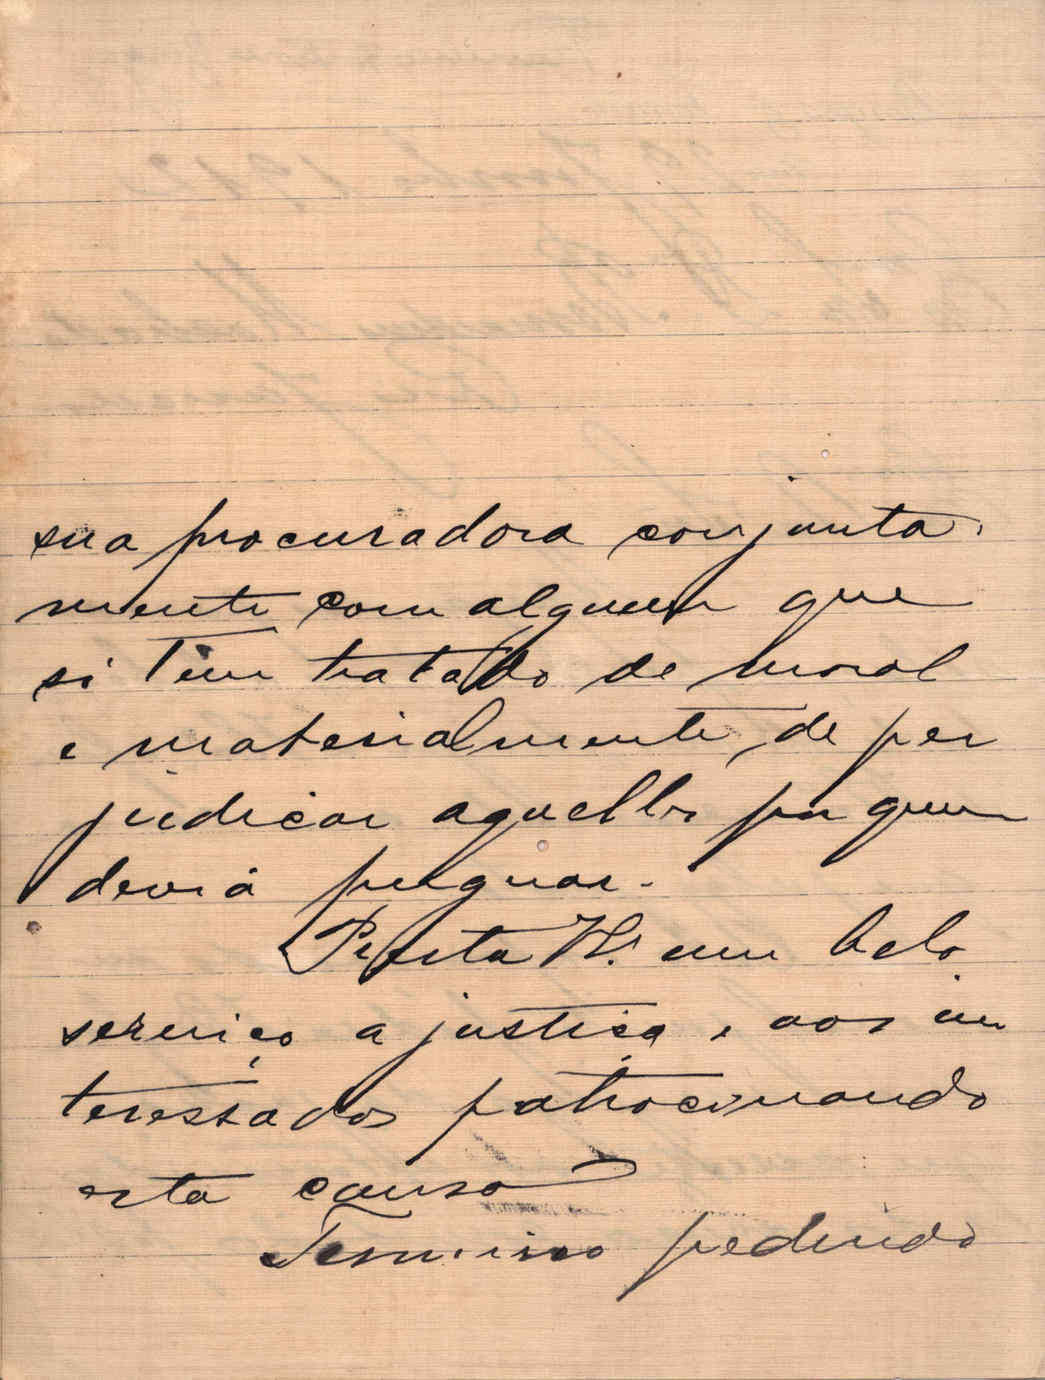 sua procuradora conjunta
mente com alguem que
si tem tratado de moral
e materialmente, de per
judicar aquelles por quem
devia pugnar.
Presta V. um belo
serviço a justiça e aos in
teressados patrocinando
esta causa
Termino pedindo